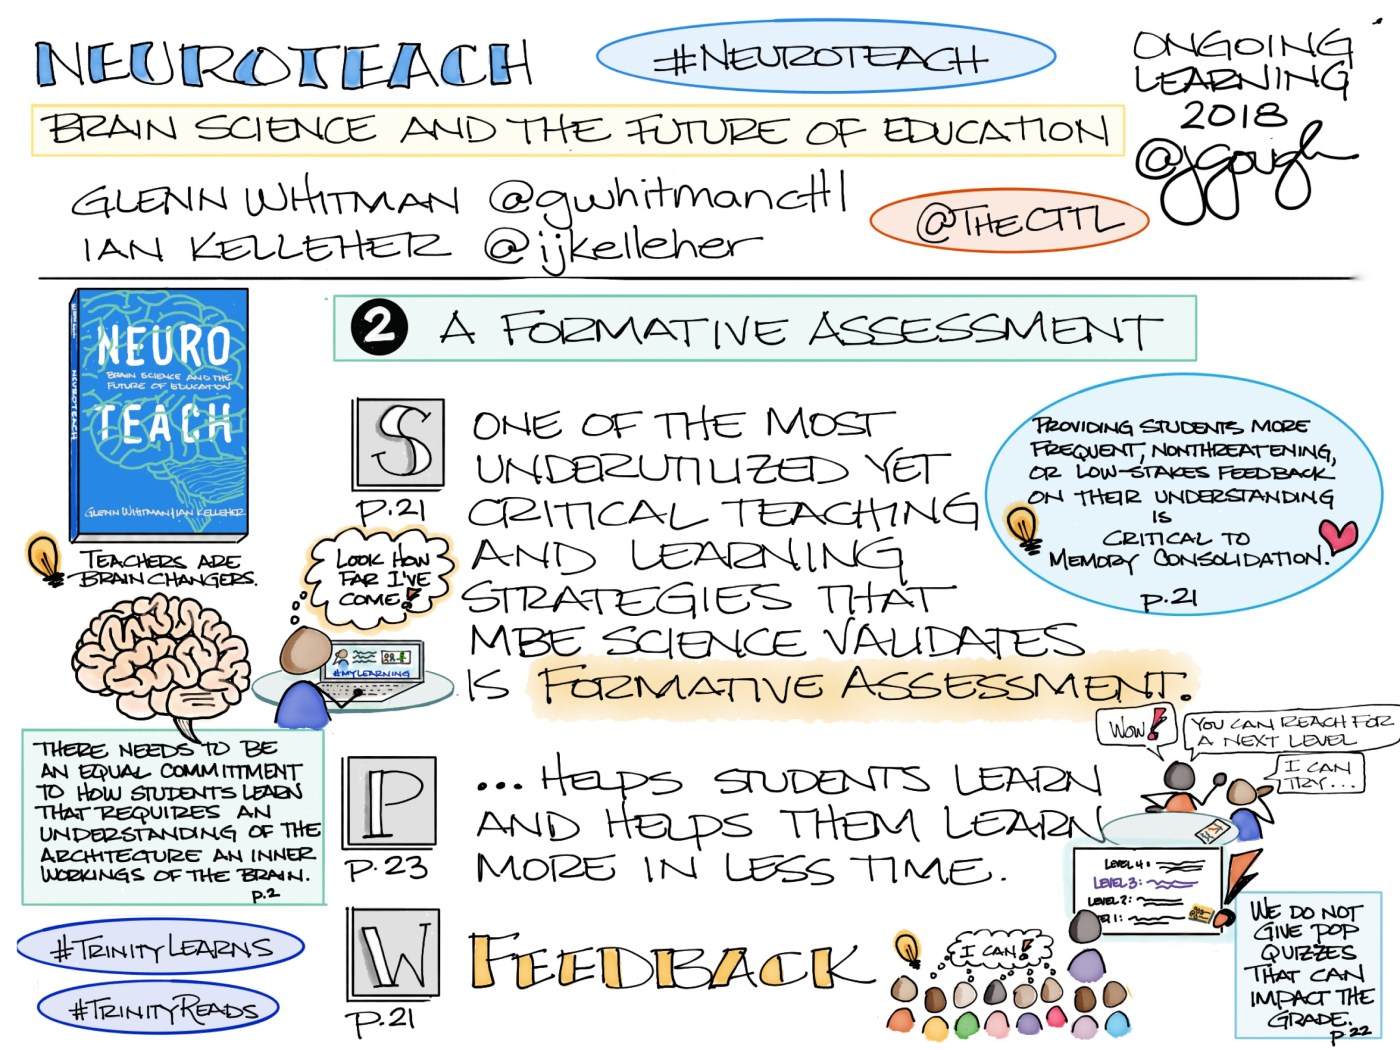 NEUROTEACH
#NEUROTEACH
ONGOING
LEARNING
2018
@jgough
BRAIN SCIENCE AND THE FUTURE OF EDUCATION
GLENN WHITMAN @gwhitmancttl
IAN KELLEHER @ijkelleher
@THECTTL
NEUROTEACH
NEURO
BRAIN SCIENCE AND THE
FUTURE OF EDUCATION
TEACH
GLENN WHITMAN | IAN KELLEHER
TEACHERS ARE
BRAIN CHANGERS.
THERE NEEDS TO BE
AN EQUAL COMMITTMENT
TO HOW STUDENTS LEARN
THAT REQUIRES AN
UNDERSTANDING OF THE
ARCHITECTURE AN INNER
WORKINGS OF THE BRAIN.
p.2
#TRINITYLEARNS
#TRINITYREADS
2 A FORMATIVE ASSESSMENT
S
p.21
ONE OF THE MOST
UNDERUTILIZED YET
CRITICAL TEACHING
AND LEARNING
STRATEGIES THAT
MBE SCIENCE VALIDATES
IS FORMATIVE ASSESSMENT.
LOOK HOW
FAR I'VE
COME!
#MYLEARNING
PROVIDING STUDENTS MORE
FREQUENT, NONTHREATENING,
OR LOW-STAKES FEEDBACK
ON THEIR UNDERSTANDING
IS
CRITICAL TO
MEMORY CONSOLIDATION.
p.21
P
p.23
... HELPS STUDENTS LEARN
AND HELPS THEM LEARN
MORE IN LESS TIME.
WOW!
YOU CAN REACH FOR
A NEXT LEVEL
I CAN
TRY...
LEVEL 4:
LEVEL 3:
LEVEL 2:
EL 1:
W
p.21
FEEDBACK
I CAN!
WE DO NOT
GIVE POP
QUIZZES
THAT CAN
IMPACT THE
GRADE.
p.22